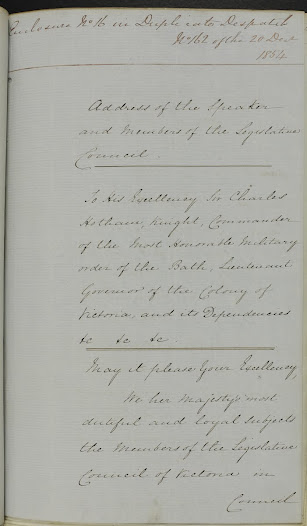 Enclosure No 16 in Duplicate Despatch
No 162 of the 20 Decr
1854
Address of the Speaker
and Members of the Legislative
Council.
To His Excellency Sir Charles
Hotham, Knight, Commander
of the Most Honorable Military
order of the Bath, Lieutenant
Governor of the Colony of
Victoria, and its Dependencies
&c &c &c
May it please Your Excellency,
We her Majesty's most
dutiful and loyal subjects
the Members of the Legislative
Council of Victoria in
Council